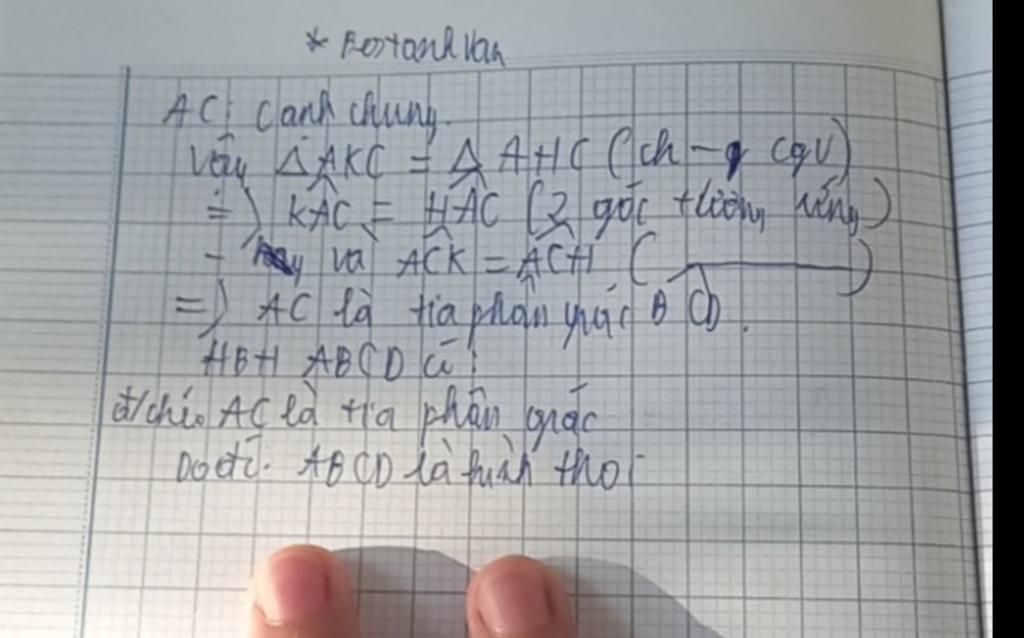 * Bostanhvan
AC: cạnh chung.
Vậy △AKC = △AHC (ch - cgv)
=> KÂC = HÂC (2 góc tương ứng)
- và ACK = ACH ( ——— )
=> AC là tia phân giác BCD.
HBH ABCD có:
đ/chéo AC là tia phân giác
Do đó: ABCD là hình thoi